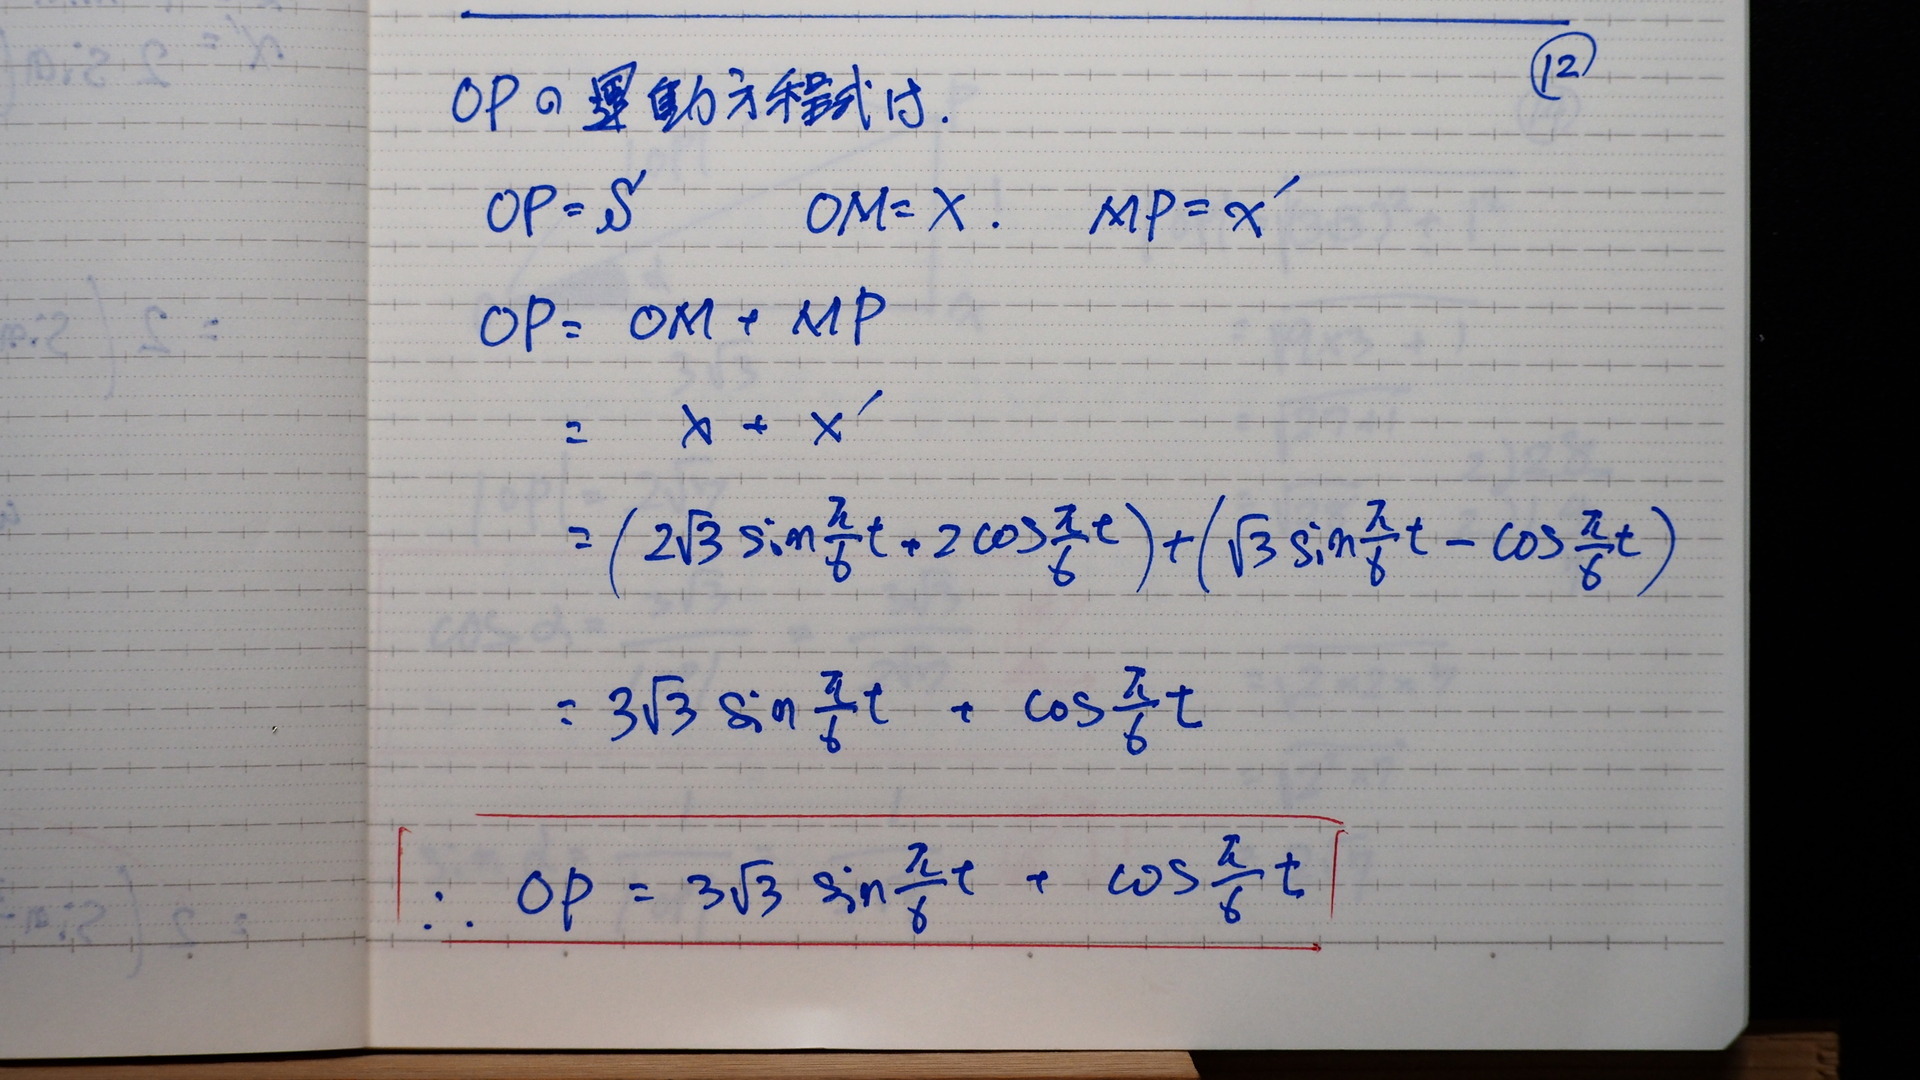 ⑫
OPの運動方程式は.
OP=S' OM=x. MP=x'
OP= OM + MP
= x + x'
=(2√3 sin π/6 t + 2 cos π/6 t)+(√3 sin π/6 t − cos π/6 t)
= 3√3 sin π/6 t + cos π/6 t
∴ OP = 3√3 sin π/6 t + cos π/6 t